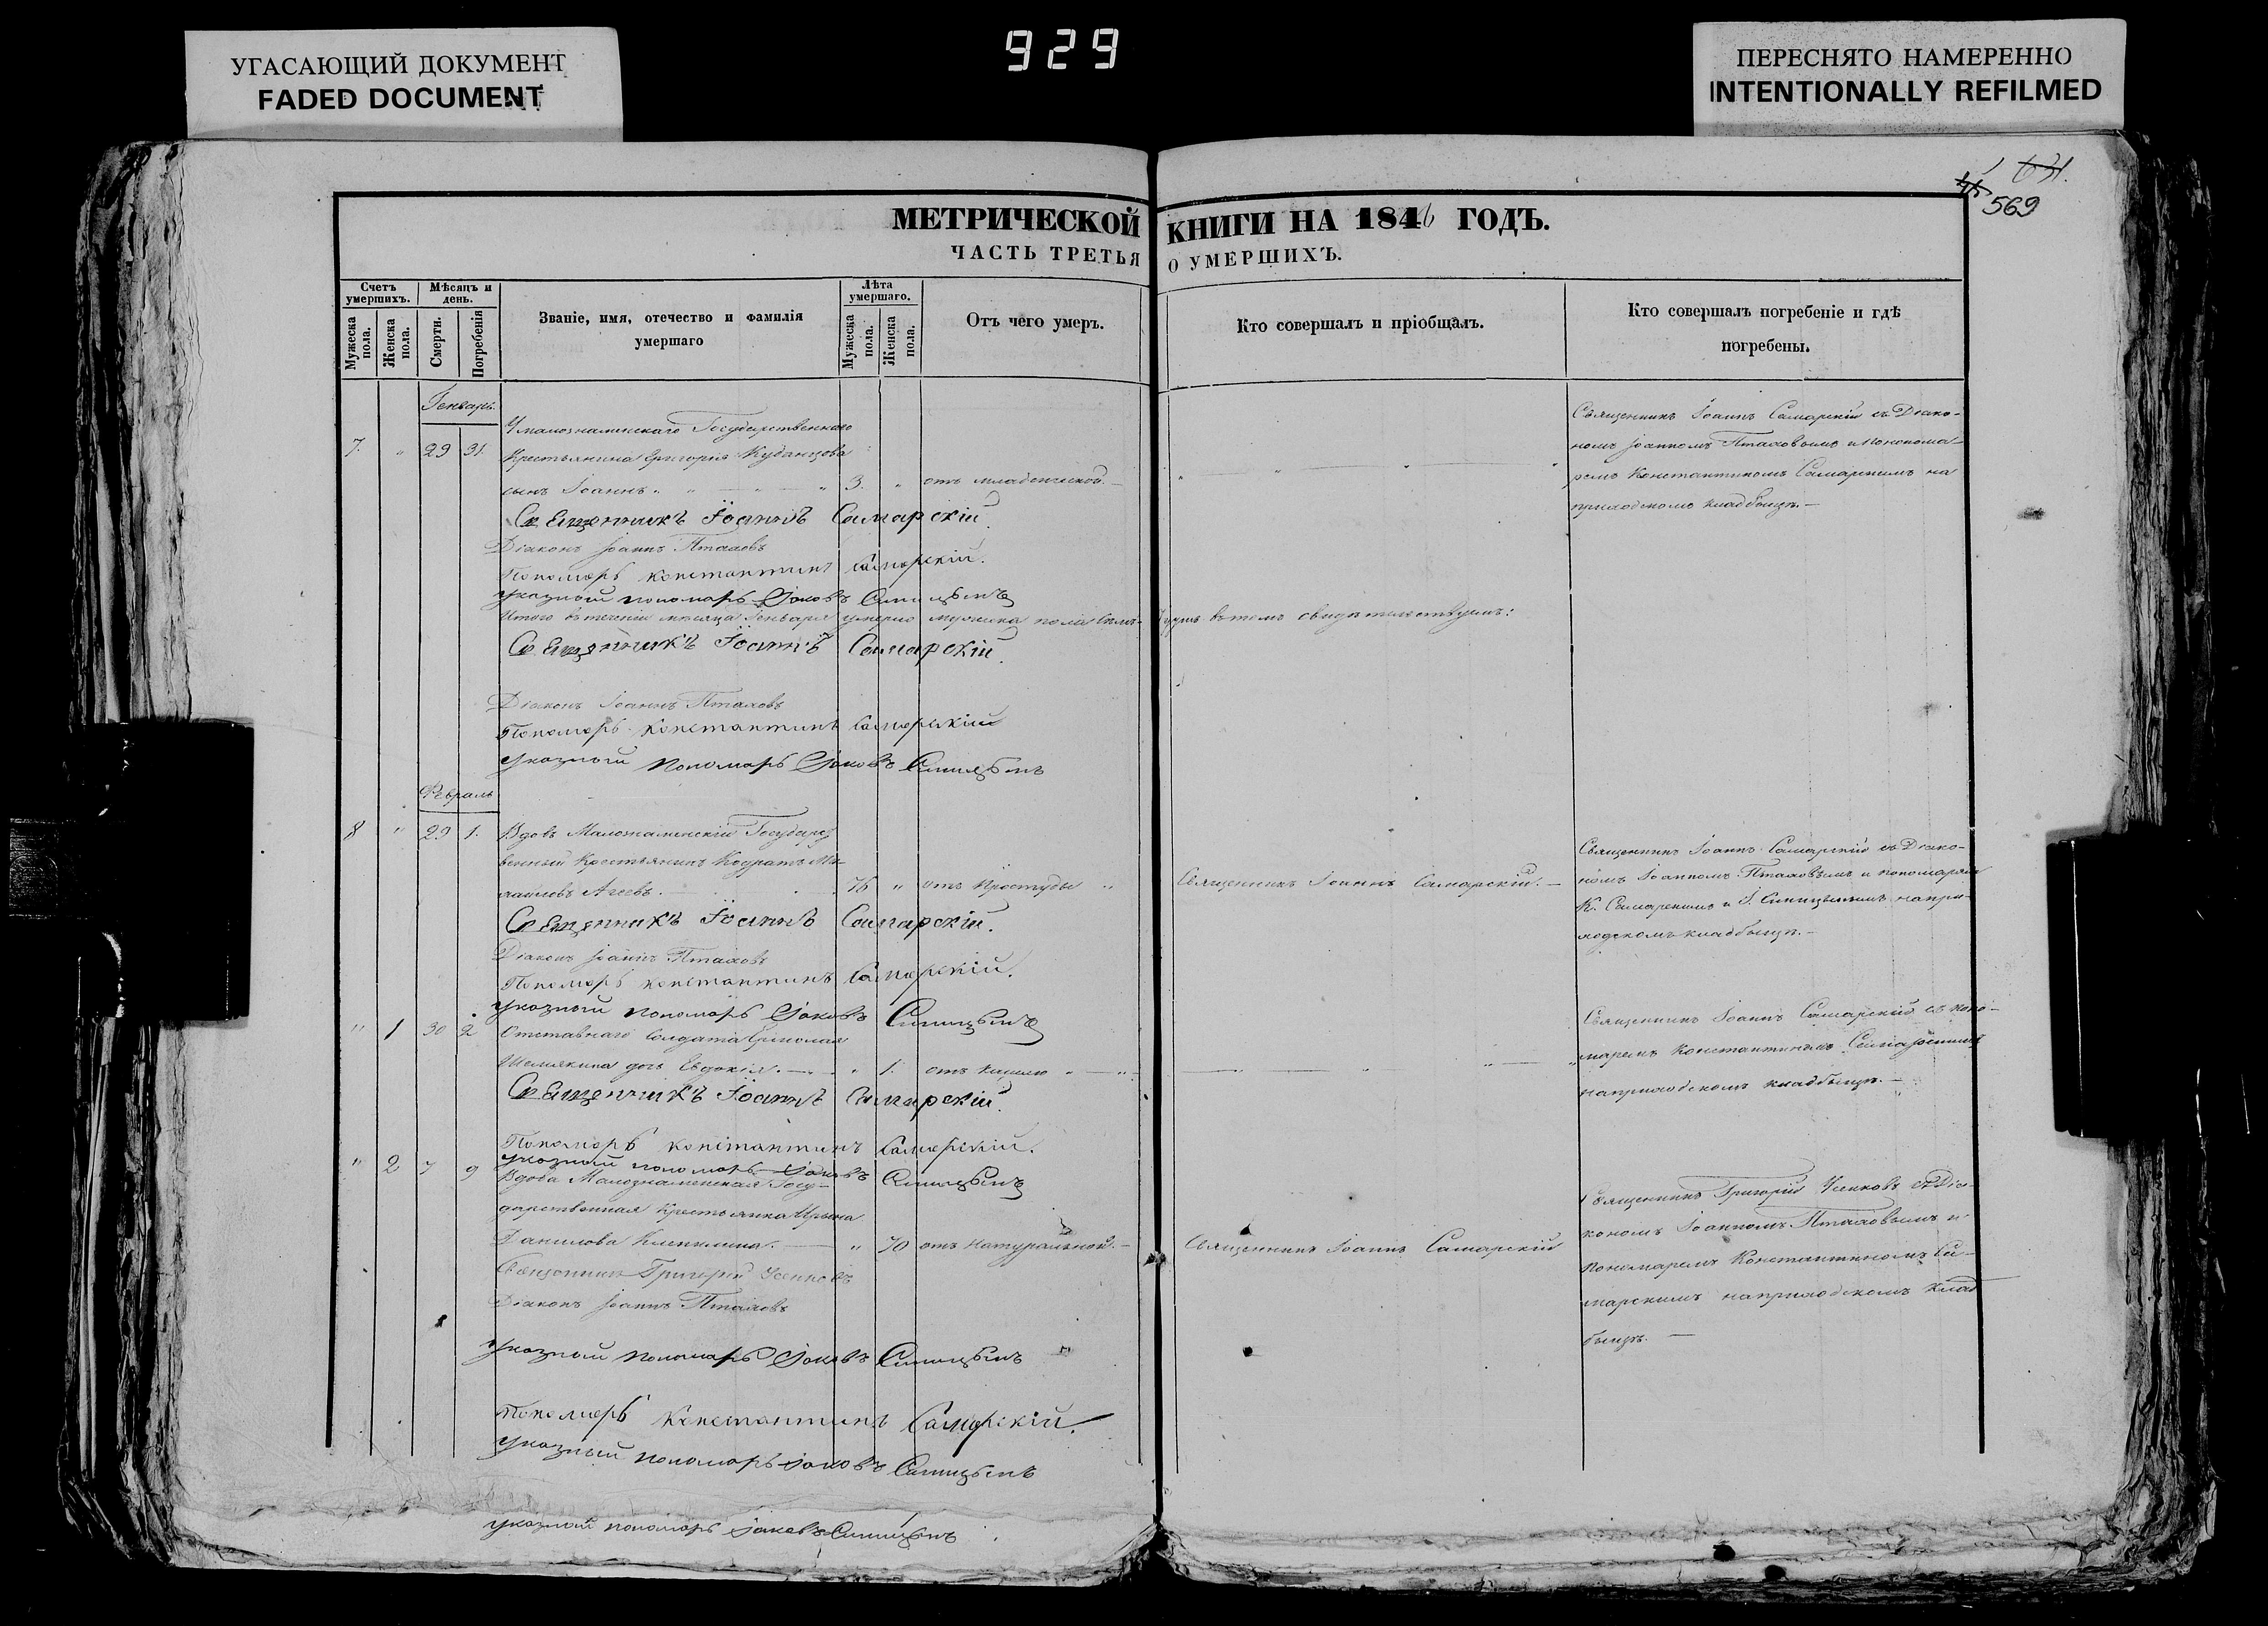 УГАСАЮЩИЙ ДОКУМЕНТ
FADED DOCUMENT
929
ПЕРЕСНЯТО НАМЕРЕННО
INTENTIONALLY REFILMED
569
МЕТРИЧЕСКОЙ КНИГИ НА 1846 ГОДЪ.
ЧАСТЬ ТРЕТЬЯ О УМЕРШИХЪ.
Счетъ умершихъ.
Мужеска пола.
Женска пола.
Мѣсяцъ и день.
Смерти.
Погребенія
Званіе, имя, отечество и фамилія умершаго
Лѣта умершаго.
Мужеска пола.
Женска пола.
Отъ чего умеръ.
Кто совершалъ и пріобщалъ.
Кто совершалъ погребеніе и гдѣ погребены.
Генварь.
7. " 29 31.
У малознаменскаго Государственнаго
Крестьянина Григорія Кубанцова
сынъ Іоаннъ " 3. " отъ младенческой.
Священникъ Іоаннъ Самарскій съ Діако-
номъ Іоанномъ Птаховымъ и пономa-
ремъ Константиномъ Самарскимъ на
приходскомъ кладбищѣ.
Священникъ Іоаннъ Самарскій.
Діаконъ Іоаннъ Птаховъ
Пономарь Константинъ Самарскій.
Указный пономарь Іаковъ Синицынъ
Итого въ теченіи мѣсяца Генваря умерло мужеска пола въ томъ свидѣтельствуемъ:
Священникъ Іоаннъ Самарскій.
Діаконъ Іоаннъ Птаховъ
Пономарь Константинъ Самарскій
Указный пономарь Іаковъ Синицынъ
Февраль
8 " 29 1.
Вдовъ Малознаменскій Государст-
венный Крестьянинъ Кодратъ Ми-
хайловъ Агеевъ. 76 " отъ простуды "
Священникъ Іоаннъ Самарскій.
Священникъ Іоаннъ Самарскій съ Діако-
номъ Іоанномъ Птаховымъ и пономарями
К. Самарскимъ и І. Синицынымъ на при-
ходскомъ кладбищѣ.
Священникъ Іоаннъ Самарскій.
Діаконъ Іоаннъ Птаховъ
Пономарь Константинъ Самарскій.
Указный пономарь Іаковъ Синицынъ
" 1 30 2
Отставнаго Солдата Ермолая
Шемякина дочь Евдокія. " 1. отъ кашлю "
Священникъ Іоаннъ Самарскій съ поно-
маремъ Константиномъ Самарскимъ
на приходскомъ кладбищѣ.
Священникъ Іоаннъ Самарскій.
Пономарь Константинъ Самарскій.
Указный пономарь Іаковъ Синицынъ
" 2 7 9
Вдова Малознаменская Госу-
дарственная Крестьянка Ирина
Данилова " 70 отъ натуральной.
Священникъ Іоаннъ Самарскій
Священникъ Григорій Усенковъ съ Діа-
кономъ Іоанномъ Птаховымъ и
пономаремъ Константиномъ Са-
марскимъ на приходскомъ клад-
бищѣ.
Священникъ Григорій Усенковъ
Діаконъ Іоаннъ Птаховъ
Указный пономарь Іаковъ Синицынъ
Пономарь Константинъ Самарскій.
Указный пономарь Іаковъ Синицынъ
Указный пономарь Іаковъ Синицынъ